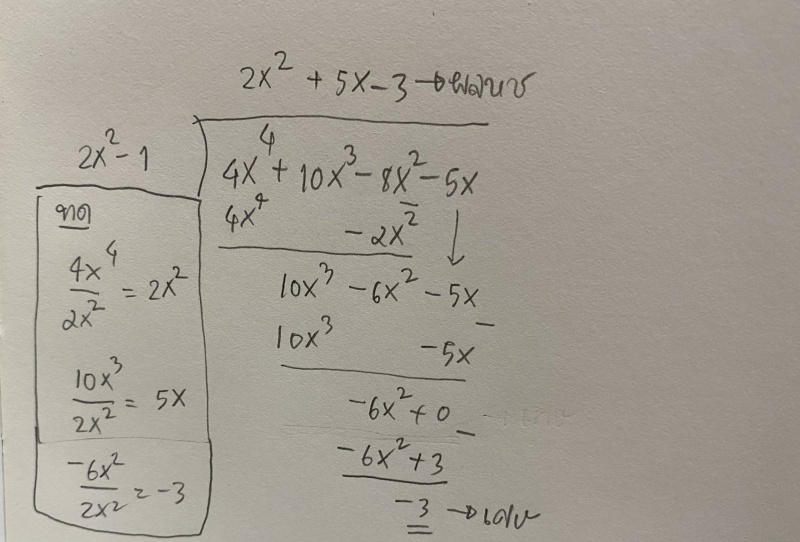 2x² + 5x - 3 → ผลหาร
2x² - 1
4x⁴ + 10x³ - 8x² - 5x
4x⁴ - 2x²
10x³ - 6x² - 5x
10x³ - 5x
-6x² + 0
-6x² + 3
-3 → เศษ
ทด
4x⁴/2x² = 2x²
10x³/2x² = 5x
-6x²/2x² = -3